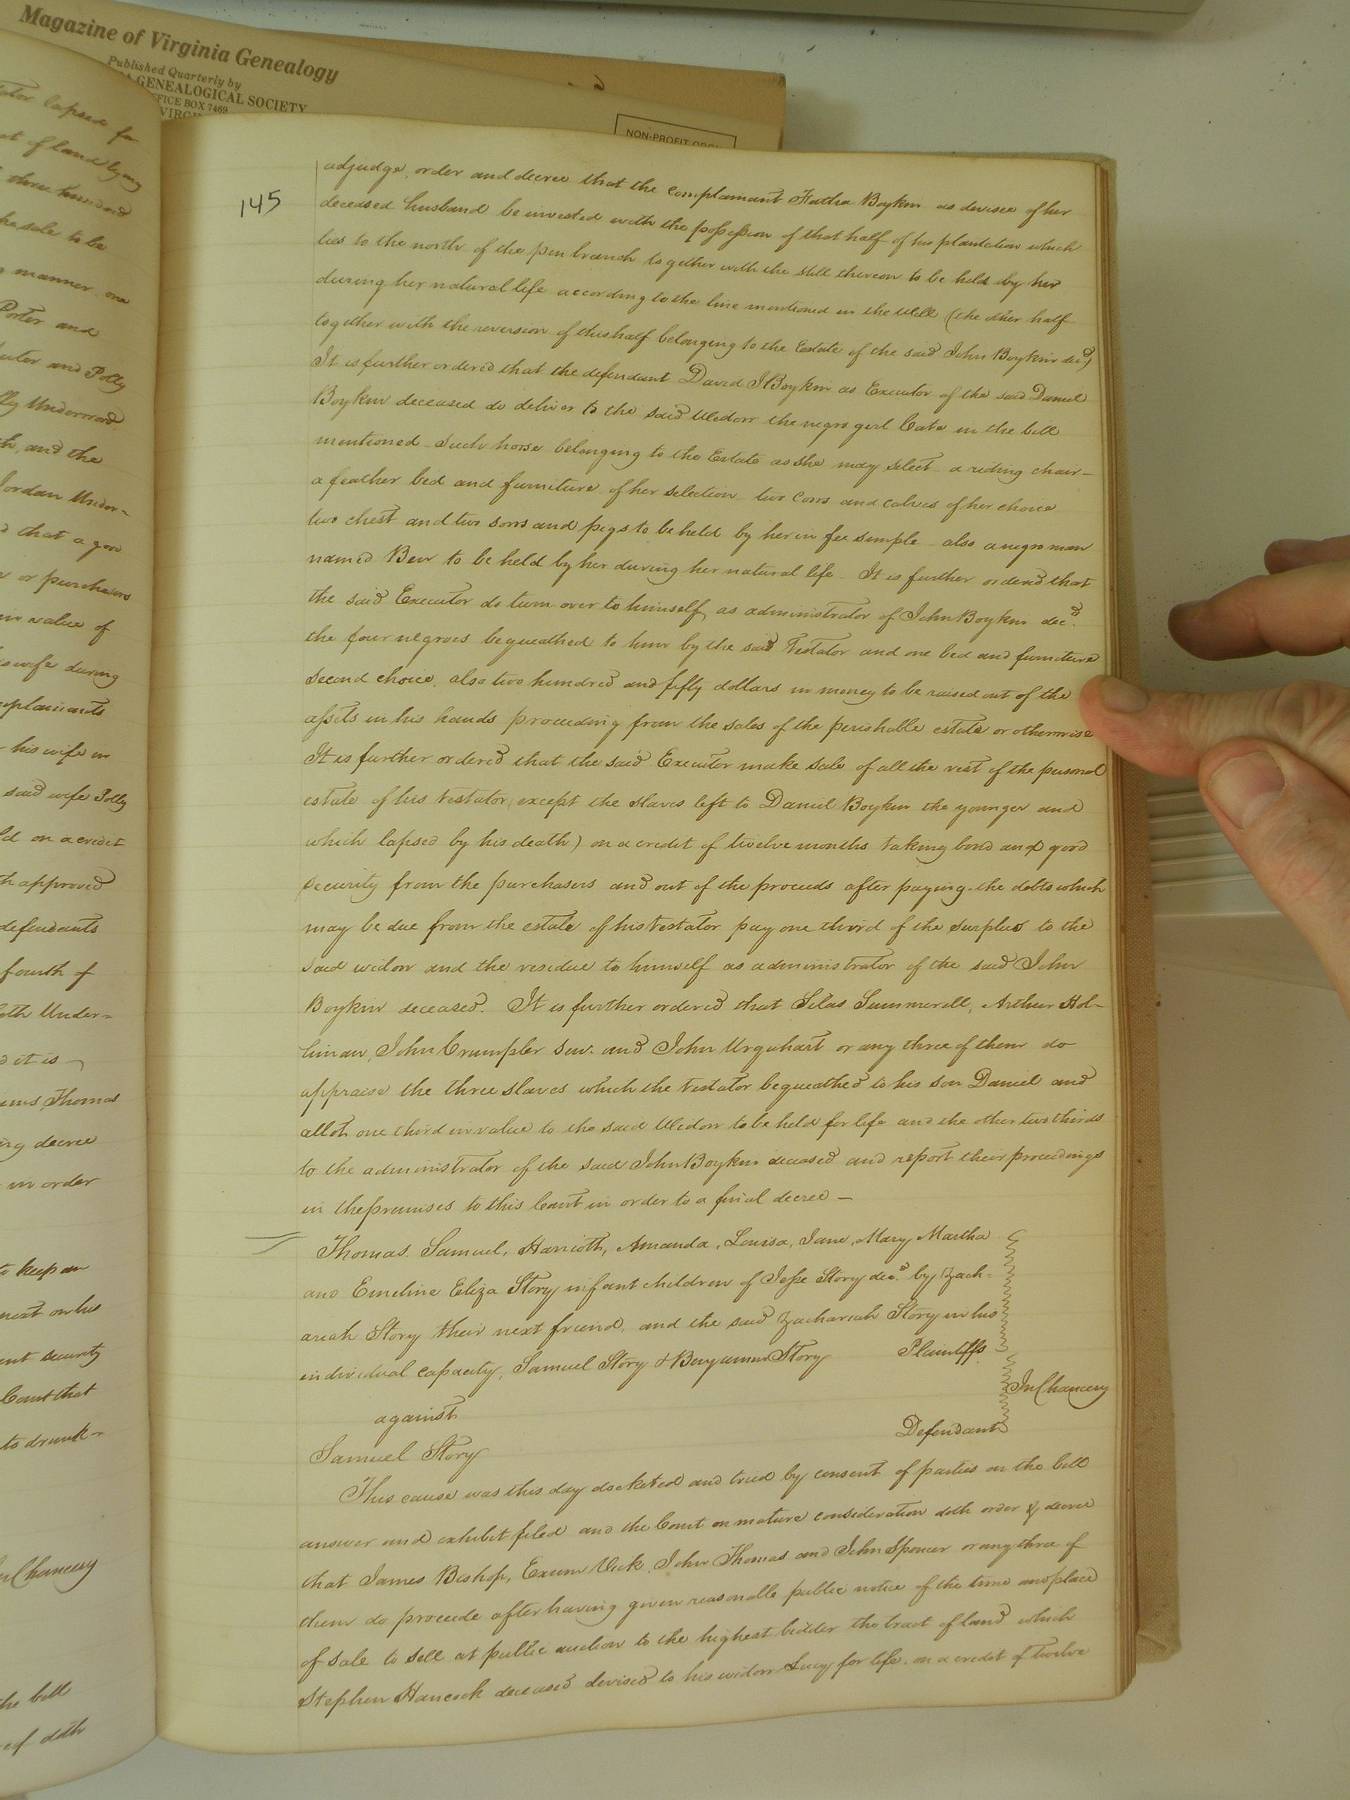 Magazine of Virginia Genealogy
Published Quarterly by
GENEALOGICAL SOCIETY
OFFICE BOX 7469
NON-PROFIT ORG.
145
adjudge, order and decree that the complainant Boykin as devisee of her
deceased husband be invested with the possession of that half of his plantation which
lies to the north of the pen branch together with the still thereon to be held by her
during her natural life according to the line mentioned in the Will (the other half
together with the reversion of this half belonging to the Estate of the said John Boykin decd)
It is further ordered that the defendant David J Boykin as Executor of the said Daniel
Boykin deceased do deliver to the said Widow the negro girl Cate in the bill
mentioned such horse belonging to the Estate as she may select a riding chair
a feather bed and furniture of her selection two cows and calves of her choice
two chest and two sows and pigs to be held by her in fee simple also a negro man
named Ben to be held by her during her natural life It is further ordered that
the said Executor do turn over to himself as administrator of John Boykin decd.
the four negroes bequeathed to him by the said Testator and one bed and furniture
second choice, also two hundred and fifty dollars in money to be raised out of the
assets in his hands proceeding from the sales of the perishable estate or otherwise
It is further ordered that the said Executor make sale of all the rest of the personal
estate of his testator (except the slaves left to Daniel Boykin the younger and
which lapsed by his death) on a credit of twelve months taking bond and good
security from the purchasers and out of the proceeds after paying the debts which
may be due from the estate of his Testator pay one third of the surplus to the
said widow and the residue to himself as administrator of the said John
Boykin deceased. It is further ordered that Silas Summerell, Arthur Hol-
liman, John Crumpler sen. and John Urquhart or any three of them do
appraise the three slaves which the testator bequeathed to his son Daniel and
allot one third in value to the said Widow to be held for life and the other two thirds
to the administrator of the said John Boykin deceased and report their proceedings
in the premises to this Court in order to a final decree —
Thomas, Samuel, Harrioth, Amanda, Louisa, Jane, Mary Martha
and Emeline Eliza Story infant children of Jesse Story decd by Zach-
ariah Story their next friend, and the said Zachariah Story in his
individual capacity, Samuel Story & Benjamin Story Plaintiffs
In Chancery
against
Defendant
Samuel Story
This cause was this day docketed and tried by consent of parties on the bill
answer and exhibit filed and the Court on mature consideration doth order & decree
that James Bishop, Exum Vick, John Thomas and John Spencer or any three of
them do proceede after having given reasonable public notice of the time and place
of sale to sell at public auction to the highest bidder the tract of land which
Stephen Hancock deceased devised to his widow Lucy for life, on a credit of twelve